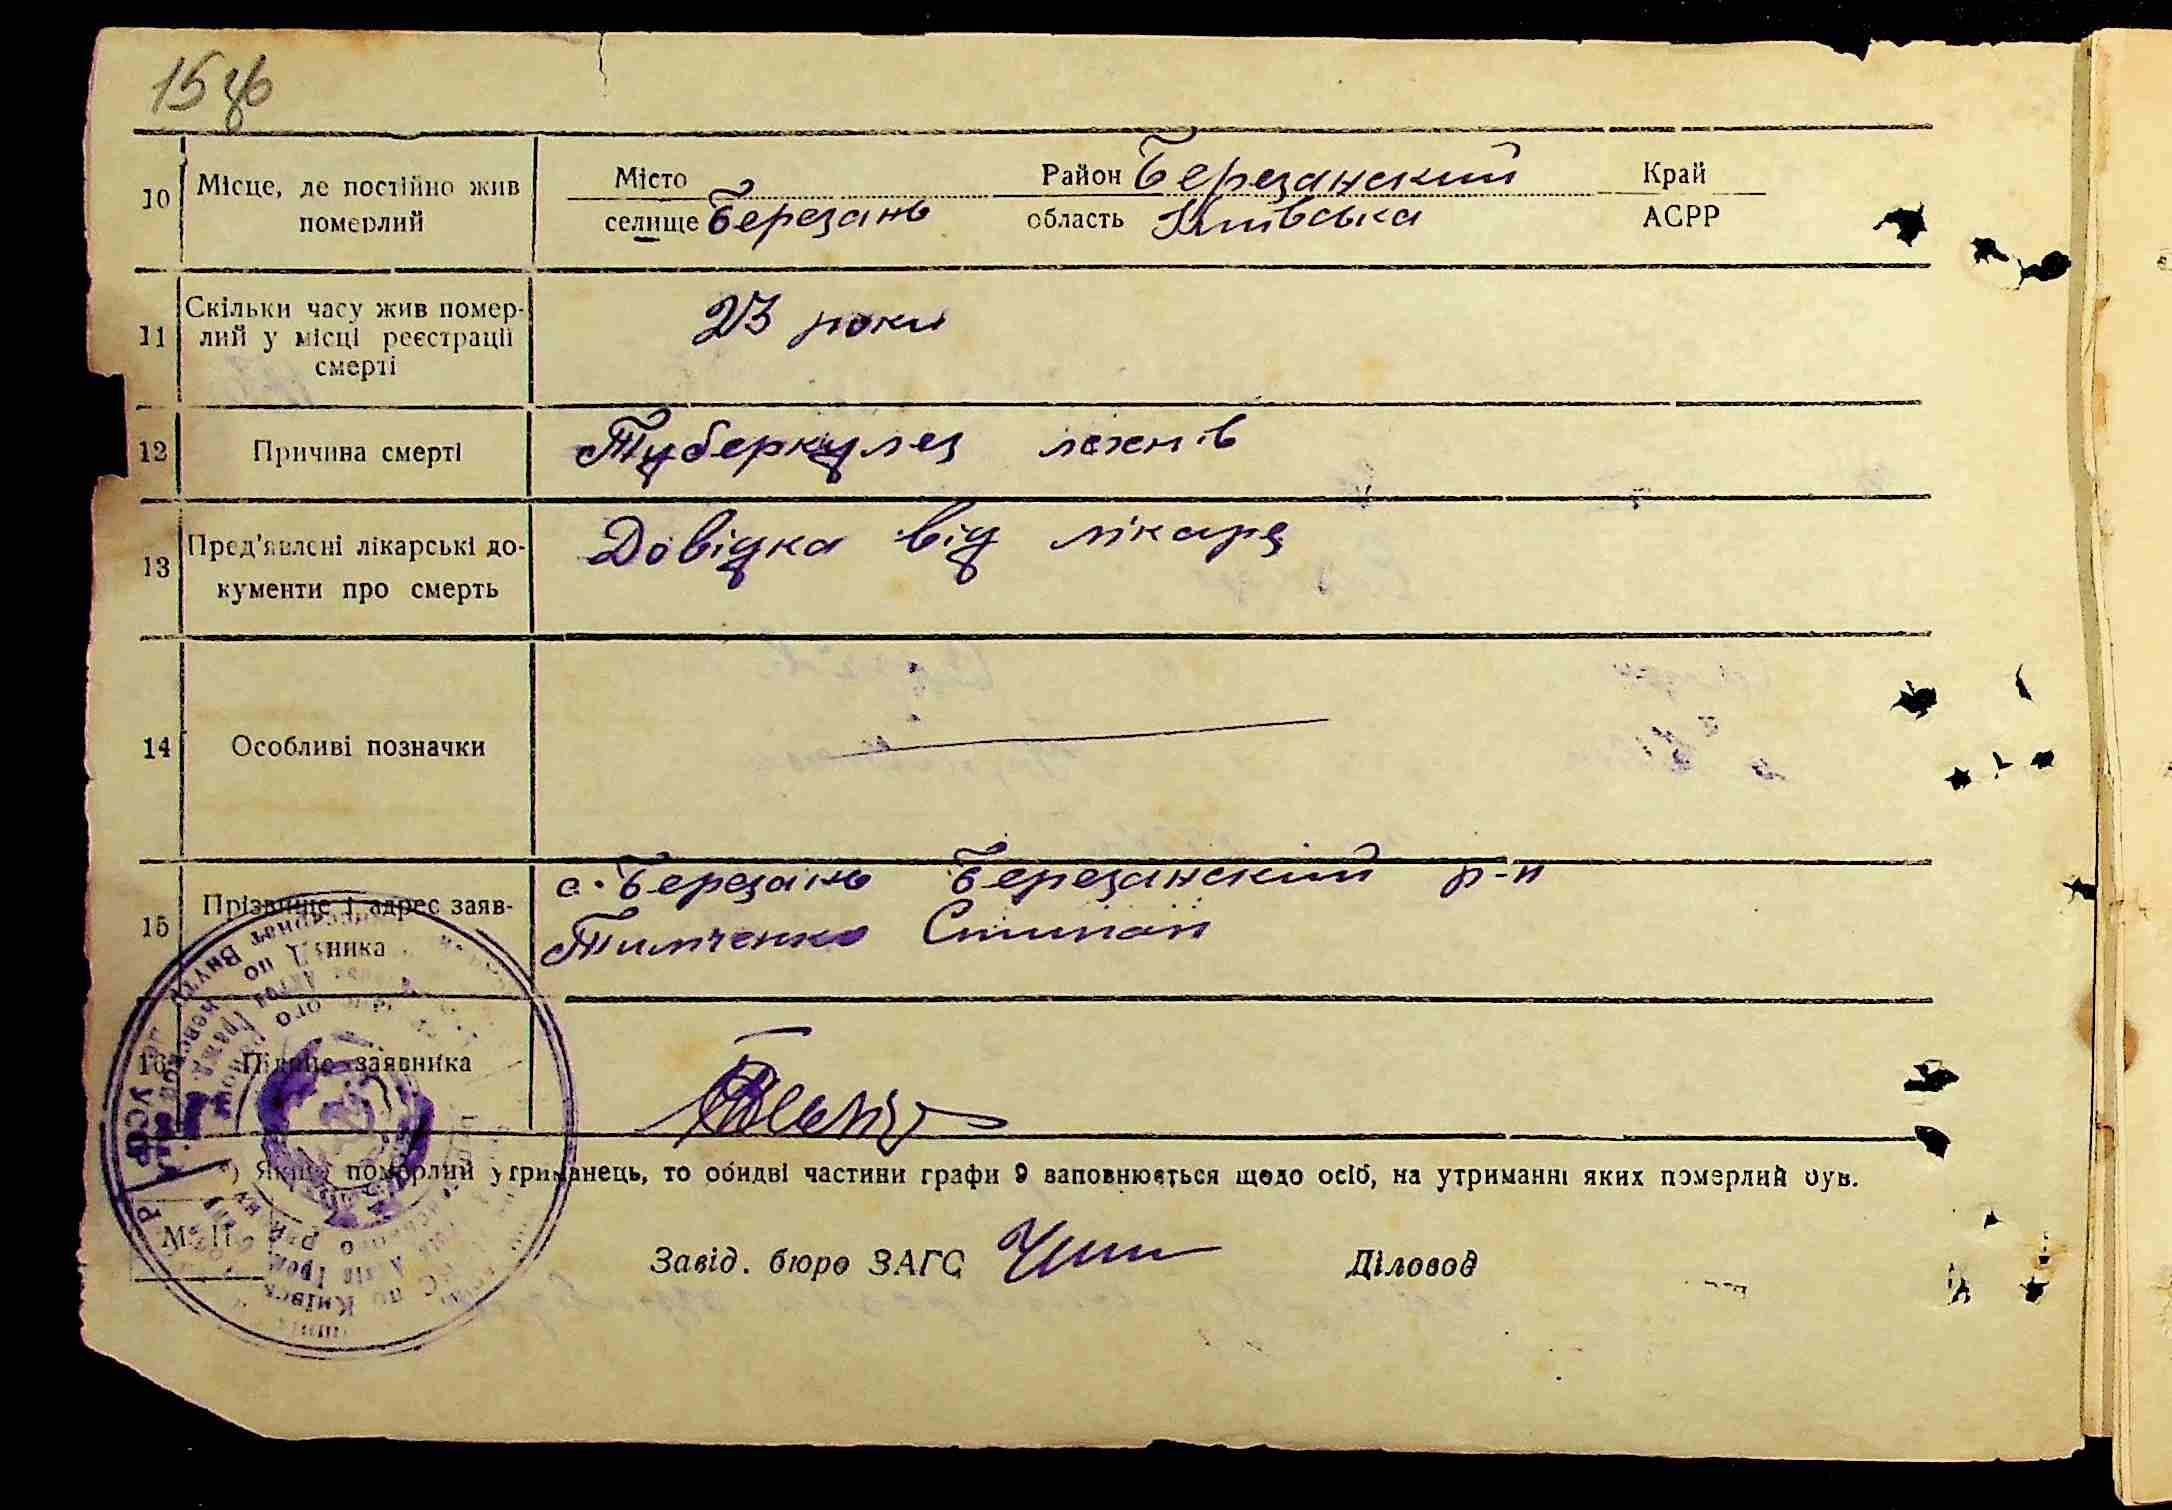 15 зв
10 Місце, де постійно жив померлий
Місто Район Березанский Край
селище Березань область Київська АСРР
11 Скільки часу жив помер-
лий у місці реєстрації
смерті
23 роки
12 Причина смерті Туберкулез легенів
13 Пред'явлені лікарські до-
кументи про смерть
Довідка від лікаря
14 Особливі позначки
15 Прізвище і адрес заяв-
ника
с. Березань Березанский р-н
Тимченко Степан
16 Підпис заявника
*) Якщо померлий утриманець, то обидві частини графи 9 заповнюється щодо осіб, на утриманні яких померлий був.
М. П.
Завід. бюро ЗАГС Діловод
УСРР